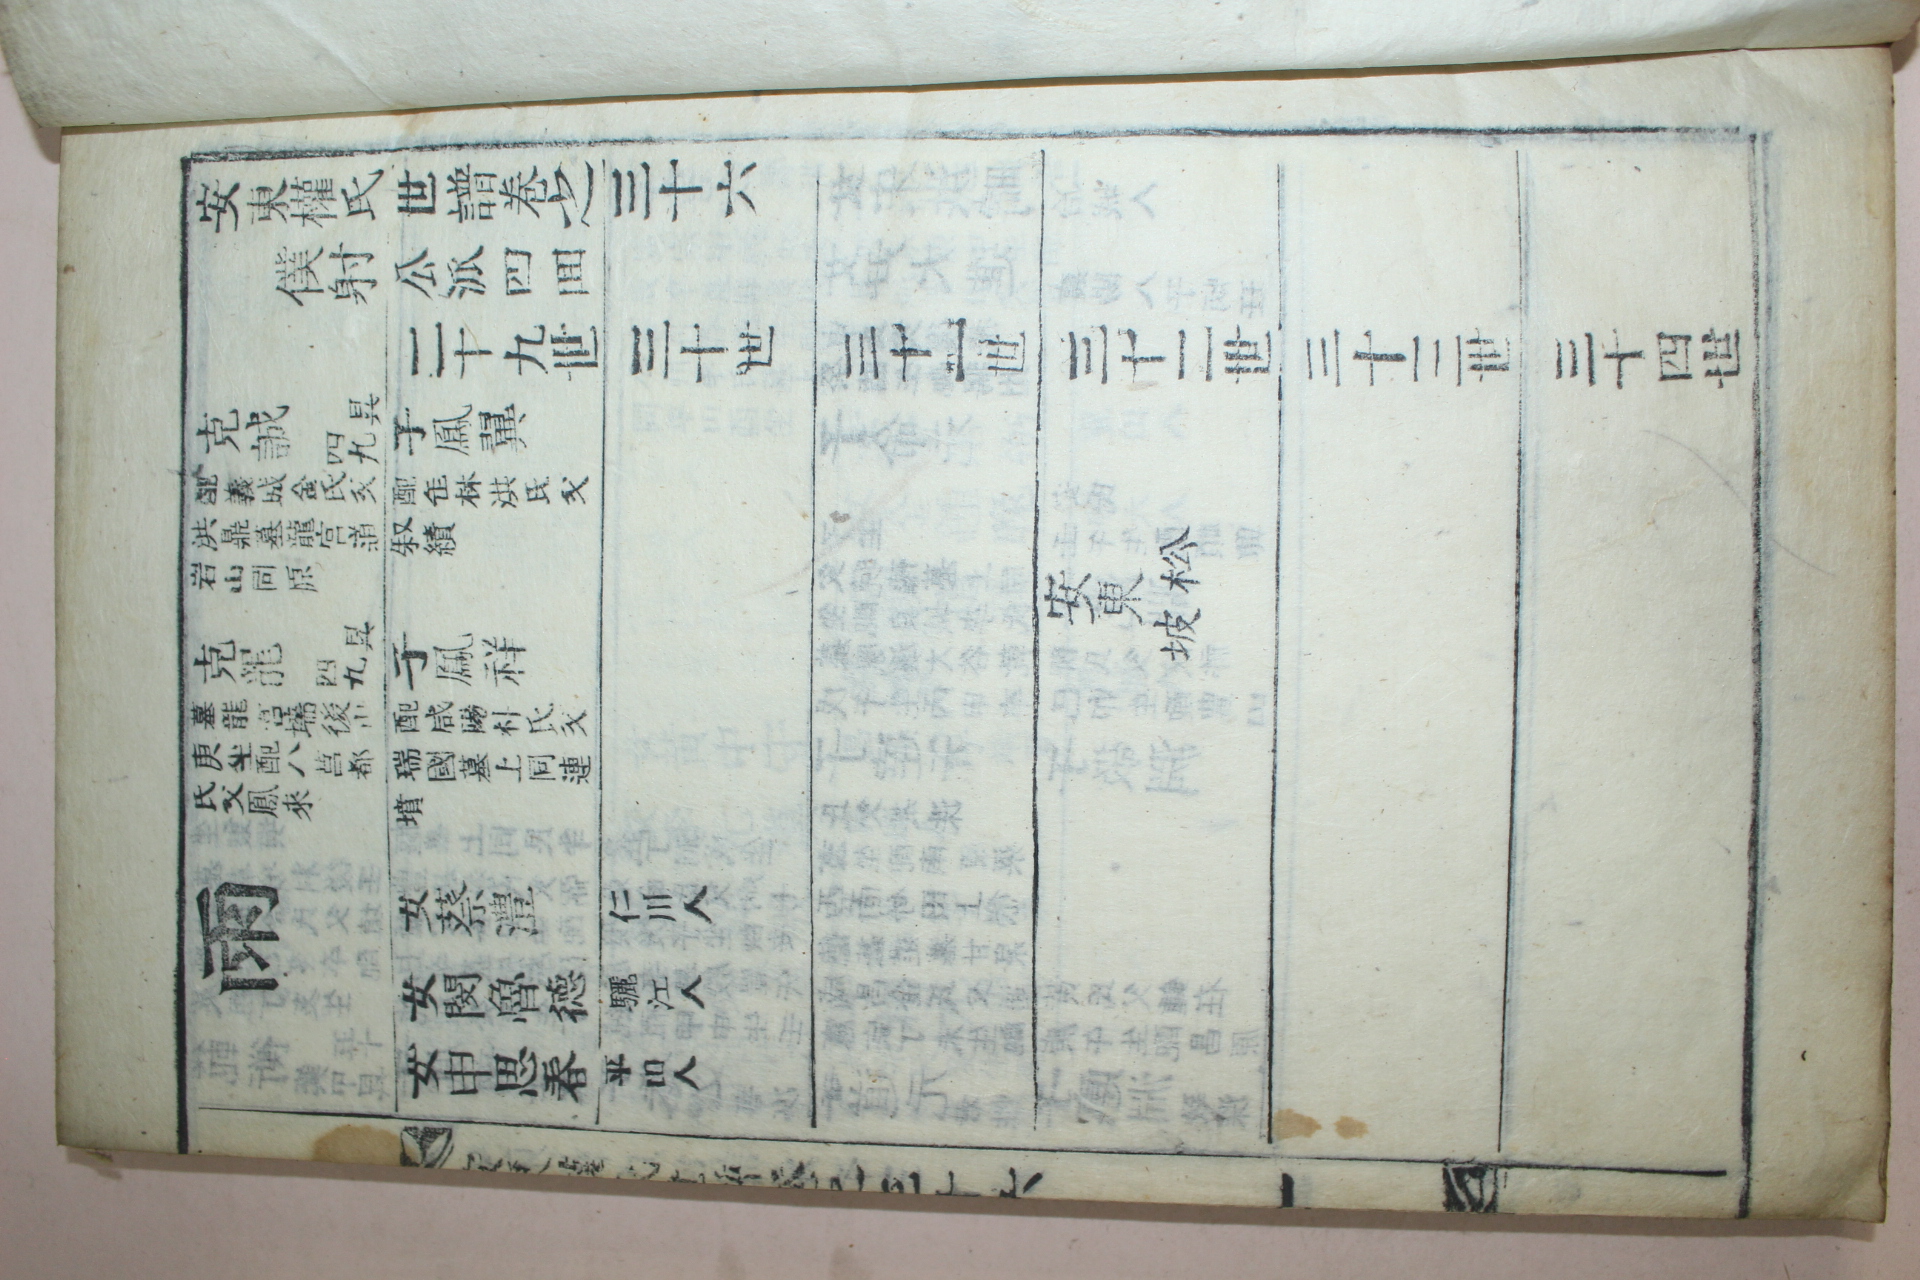 安東權氏世譜卷之三十六
僕射公派四 田
二十九世 三十世 三十一世 三十二世 三十三世 三十四世
克誠 四九昃 子鳳翼
配義城金氏父 配缶林洪氏父
洪鼎墓龍宮消 叙績
岩山同原
安東 松公
坡
克 四九昃 子鳳祥
墓龍宮場後山 配咸陽朴氏父
庚坐配八莒都 瑞國墓上同連
氏父鳳來 墳
雨
女蔡澧 仁川人
女閔魯德 驪江人
女申思春 平山人